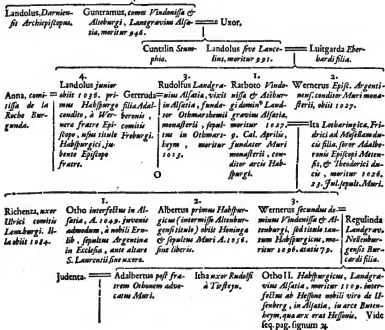 Landolus, Darnien-
sis Archiepiscopus.
Guntramus, comes Vindonissæ &
Altoburgi, Landgravius Alsa-
tiæ, moritur 946.
Uxor,
Cuntelin Stum-
phio.
Landolus sive Lance-
linus, moritur 991.
Luitgarda Eber-
hardi filia.
Anna, comi-
tissa de la
Roche Bur-
gunda.
4.
Landolus junior
obiit 1036. pri-
mus Habspurgo
condito, à Wer-
nero fratre Epi-
scopo, usus titulo
Habspurgici, ju-
bente Episcopo
fratre.
Gertruda
filia Adal-
beronis,
comitis
Froburgi.
3.
Rudolfus Landgra-
vius Alsatiæ, vixit
in Alsatia, funda-
tor Othmarshemii
monasterii, sepul-
tus in Othmars-
heym, moritur
1013.
1.
Ratboto Vindo-
nissæ & Altbur-
gi dominus Land-
gravius Alsatiæ,
moritur 1027.
9. Cal. Aprilis,
fundater Muri
monasterii, con-
ditor arcis Hab-
spurgi.
2.
Wernerus Episc. Argenti-
nens. conditor Muri mona-
sterii, obiit 1027.
Ita Lotharingica, Fri-
derici ad Mosellam du-
cis filia, soror Adalbe-
ronis Episcopi Meten-
sis, & Theodorici du-
cis, moritur 1026.
23. Jul. sepult. Muri.
Richenza, uxor
Ulrici comitis
Lomzburg. Il-
la obiit 1084.
1.
Otho interfectus in Al-
satia, A. 1049. juvenis
admodum, à nobili Ern-
lib, sepultus Argentinæ
in Ecclesia, ante altare
S. Laurentii sine uxore.
2.
Albertus primus Habspur-
gensis (intermisso Altenbur-
gensis titulo) obiit Honingæ
& sepultus Muri A. 1036.
sine liberis.
3.
Wernerus secundus do-
minus Vindonissæ & Al-
tenburgi, sed titulo tan-
tum Habspurgicus, mo-
ritur 1096. ætatis 79.
Regulinda
Landgrav.
Nellenbur-
gensis Bur-
cardi filia.
Judenta.
Adalbertus post fra-
trem Othonem advo-
catus Muri.
Itha uxor Rudolfi
à Tirsteyn.
Otho II. Habspurgicus, Landgra-
vius Alsatiæ, moritur 1109. inter-
fectus ab Hessone nobili viro de U-
senberg, in Alsatia, in arce Buten-
heym, qua arx erat Hessonis. Vide
seq. pag. signum